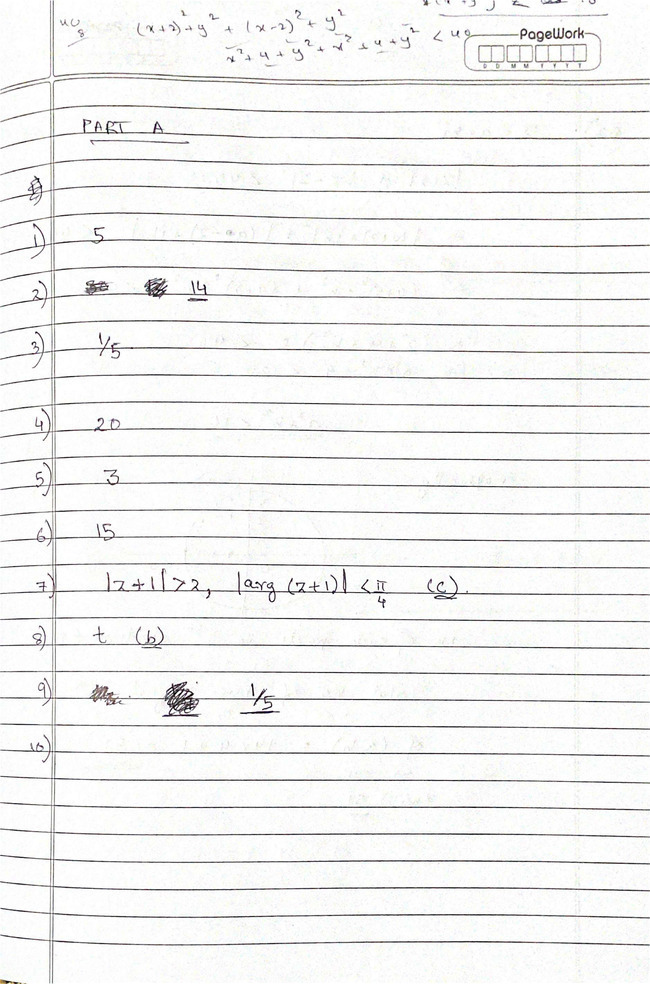 (x+2)² + y² + (x-2)² + y²
40/8 x² + 4 + y² + x² + 4 + y² < 40
PageWork
D D M M Y Y Y Y
PART A
1) 5
2) 14
3) 1/5
4) 20
5) 3
6) 15
7) |z+1| > 2, |arg (z+1)| < π/4 (c).
8) t (b)
9) 1/5
10)